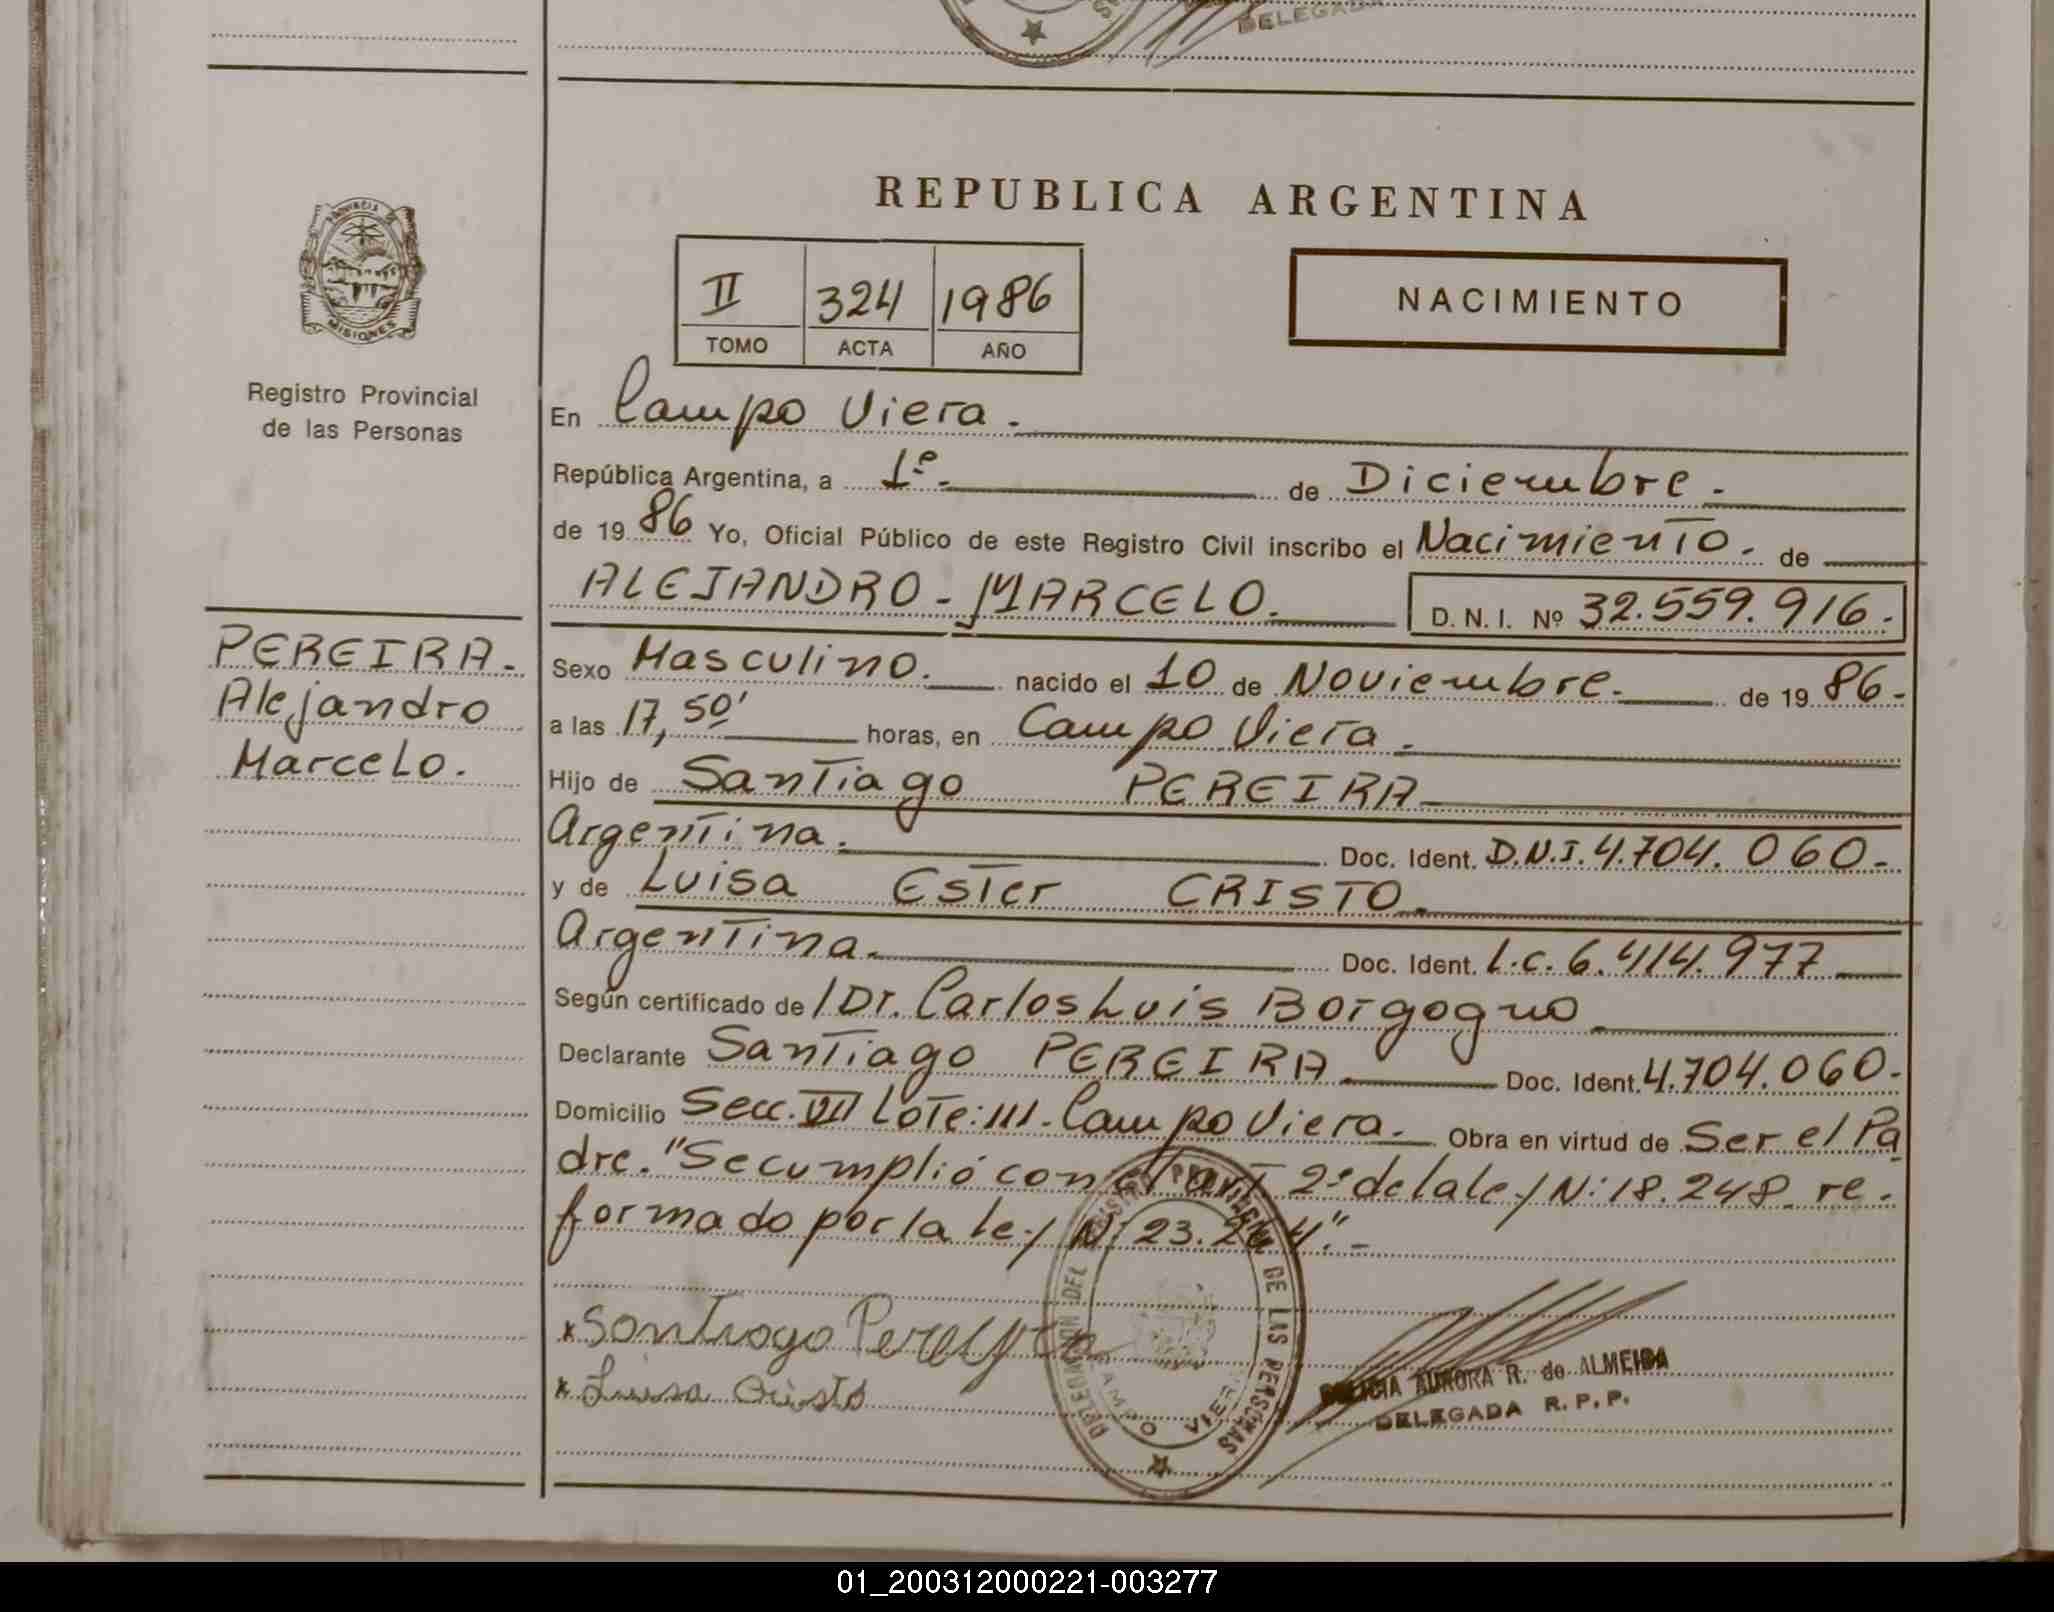 DELEGADA
REPUBLICA ARGENTINA
PROVINCIA DE
MISIONES
II 324 1986
TOMO ACTA AÑO
NACIMIENTO
Registro Provincial
de las Personas
PEREIRA.
Alejandro
Marcelo.
En Campo Viera.
República Argentina, a 1º. de Diciembre.
de 1986 Yo, Oficial Público de este Registro Civil inscribo el Nacimiento. de
ALEJANDRO - MARCELO. D. N. I. Nº 32.559.916.
Sexo Masculino. nacido el 10 de Noviembre. de 1986.
a las 17,50' horas, en Campo Viera.
Hijo de Santiago PEREIRA
Argentina. Doc. Ident. D.N.I. 4.704.060.
y de Luisa Ester CRISTO.
Argentina. Doc. Ident. L.C. 6.414.977
Según certificado de / Dr. Carlos Luis Borgogno
Declarante Santiago PEREIRA Doc. Ident. 4.704.060.
Domicilio Secc. VII Lote: 111. Campo Viera. Obra en virtud de Ser el Pa
dre. "Se cumplió con el art 2º de la ley Nº 18.248 re.
formado por la ley Nº 23.264".-
x Santiago Pereyra
x Luisa Cristo
DELEGACION DEL REGISTRO PROVINCIAL DE LAS PERSONAS
CAMPO VIERA
AURORA R. de ALMEIDA
DELEGADA R. P. P.
01_200312000221-003277